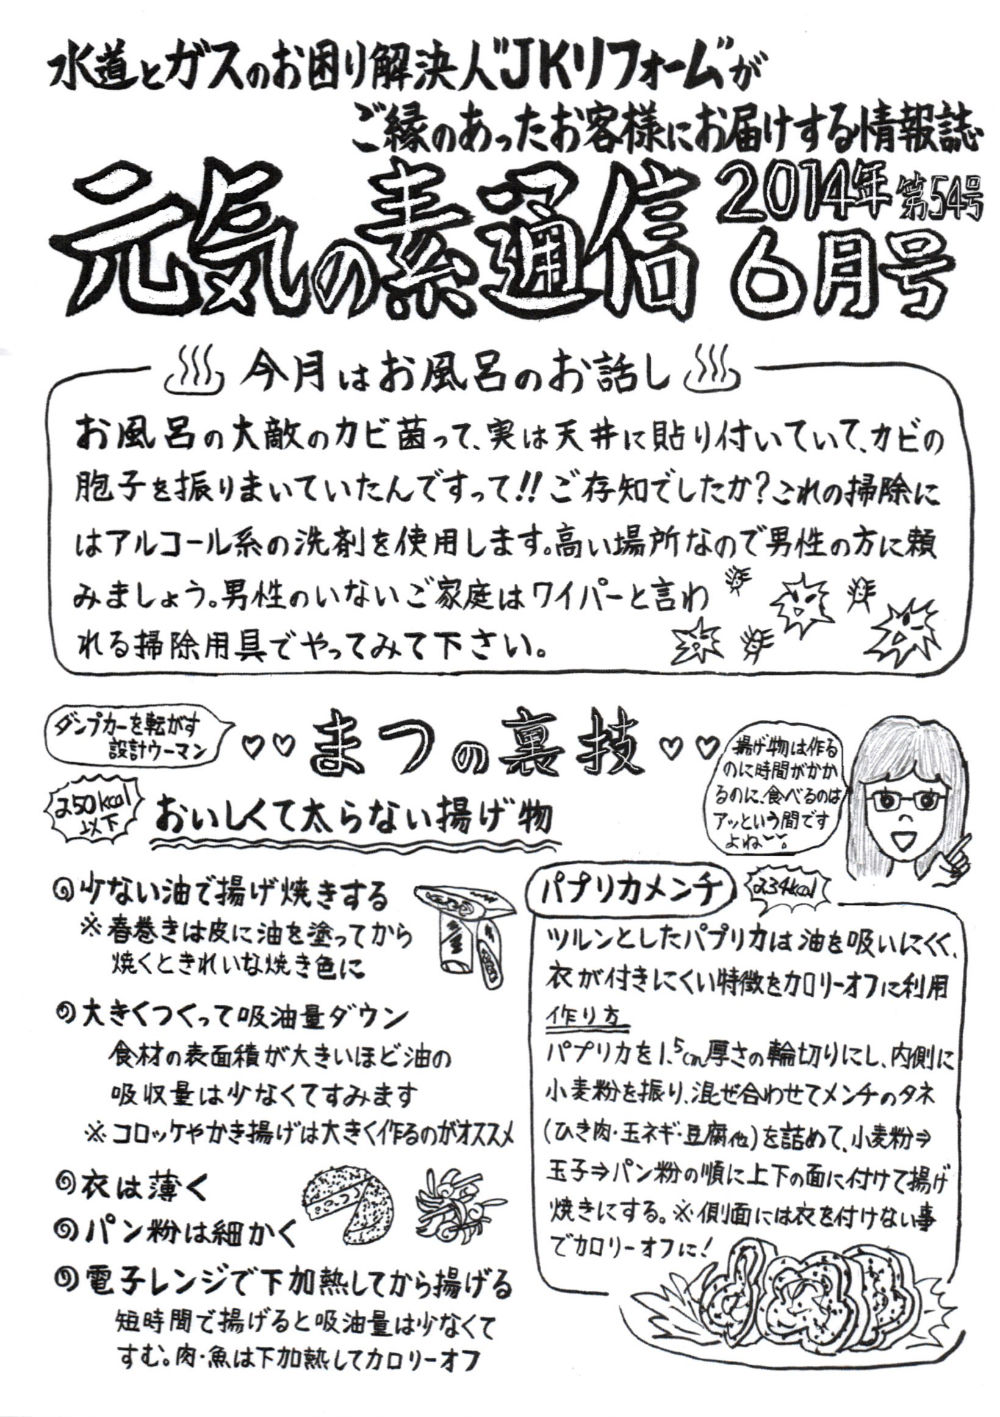 水道とガスのお困り解決人"JKリフォーム"が
ご縁のあったお客様にお届けする情報誌
元気の素通信
2014年 第54号
6月号
今月はお風呂のお話し
お風呂の大敵のカビ菌って、実は天井に貼り付いていて、カビの
胞子を振りまいていたんですって!!ご存知でしたか?これの掃除に
はアルコール系の洗剤を使用します。高い場所なので男性の方に頼
みましょう。男性のいないご家庭はワイパーと言わ
れる掃除用具でやってみて下さい。
ダンプカーを転がす
設計ウーマン
♡♡まつの裏技♡♡
揚げ物は作る
のに時間がかか
るのに、食べるのは
アッという間です
よね
250kcal
以下
おいしくて太らない揚げ物
少ない油で揚げ焼きする
※春巻きは皮に油を塗ってから
焼くときれいな焼き色に
大きくつくって吸油量ダウン
食材の表面積が大きいほど油の
吸収量は少なくてすみます
※コロッケやかき揚げは大きく作るのがオススメ
衣は薄く
パン粉は細かく
電子レンジで下加熱してから揚げる
短時間で揚げると吸油量は少なくて
すむ。肉・魚は下加熱してカロリーオフ
パプリカメンチ
234kcal
ツルンとしたパプリカは油を吸いにくく、
衣が付きにくい特徴をカロリーオフに利用
作り方
パプリカを1.5cm厚さの輪切りにし、内側に
小麦粉を振り、混ぜ合わせてメンチのタネ
(ひき肉・玉ネギ・豆腐他)を詰めて、小麦粉⇒
玉子⇒パン粉の順に上下の面に付けて揚げ
焼きにする。※側面には衣を付けない事
でカロリーオフに!